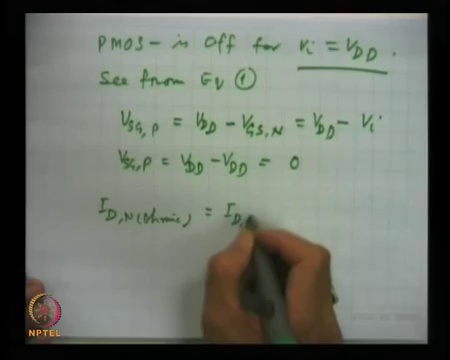 PMOS – is Off for Vi = VDD .
See from Eq ①
VSG,P = VDD – VGS,N = VDD – Vi
VSG,P = VDD – VDD = 0
ID,N(Ohmic) = ID,
NPTEL